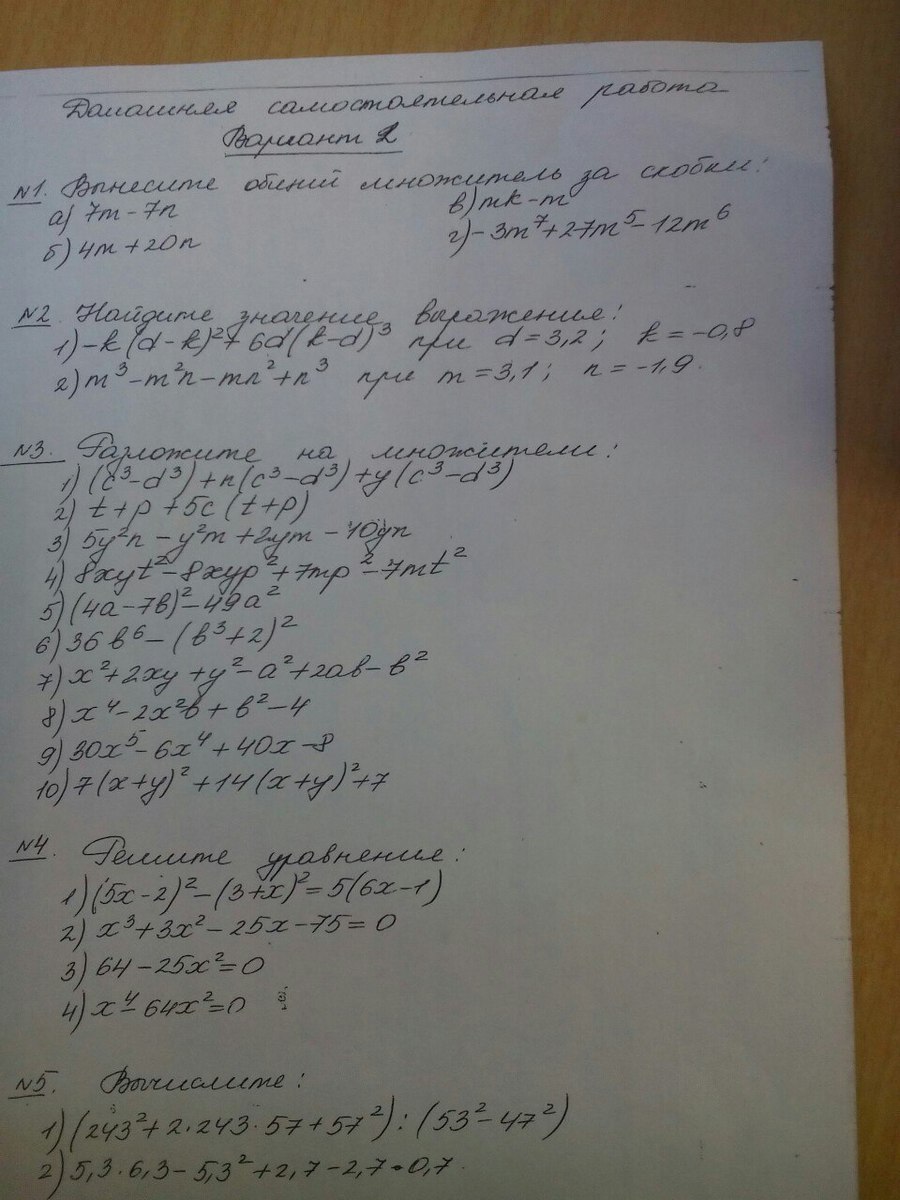 Домашняя самостоятельная работа
Вариант 2
№1. Вынесите общий множитель за скобки:
а) 7m - 7n
в) mk - m
б) 4m + 20n
г) -3m⁷ + 27m⁵ - 12m⁶
№2. Найдите значение выражения:
1) -k(d - k)² + 6d(k - d)³ при d = 3,2; k = -0,8
2) m³ - m²n - mn² + n³ при m = 3,1; n = -1,9.
№3. Разложите на множители:
1) (c³ - d³) + n(c³ - d³) + y(c³ - d³)
2) t + p + 5c(t + p)
3) 5y²n - y²m + 2ym - 10yn
4) 8xyt² - 8xyp² + 7mp² - 7mt²
5) (4a - 7b)² - 49a²
6) 36b⁶ - (b³ + 2)²
7) x² + 2xy + y² - a² + 2ab - b²
8) x⁴ - 2x²b + b² - 4
9) 30x⁵ - 6x⁴ + 40x - 8
10) 7(x + y)² + 14(x + y)² + 7
№4. Решите уравнения:
1) (5x - 2)² - (3 + x)² = 5(6x - 1)
2) x³ + 3x² - 25x - 75 = 0
3) 64 - 25x² = 0
4) x⁴ - 64x² = 0
№5. Вычислите:
1) (243² + 2·243·57 + 57²) : (53² - 47²)
2) 5,3·6,3 - 5,3² + 2,7 - 2,7·0,7